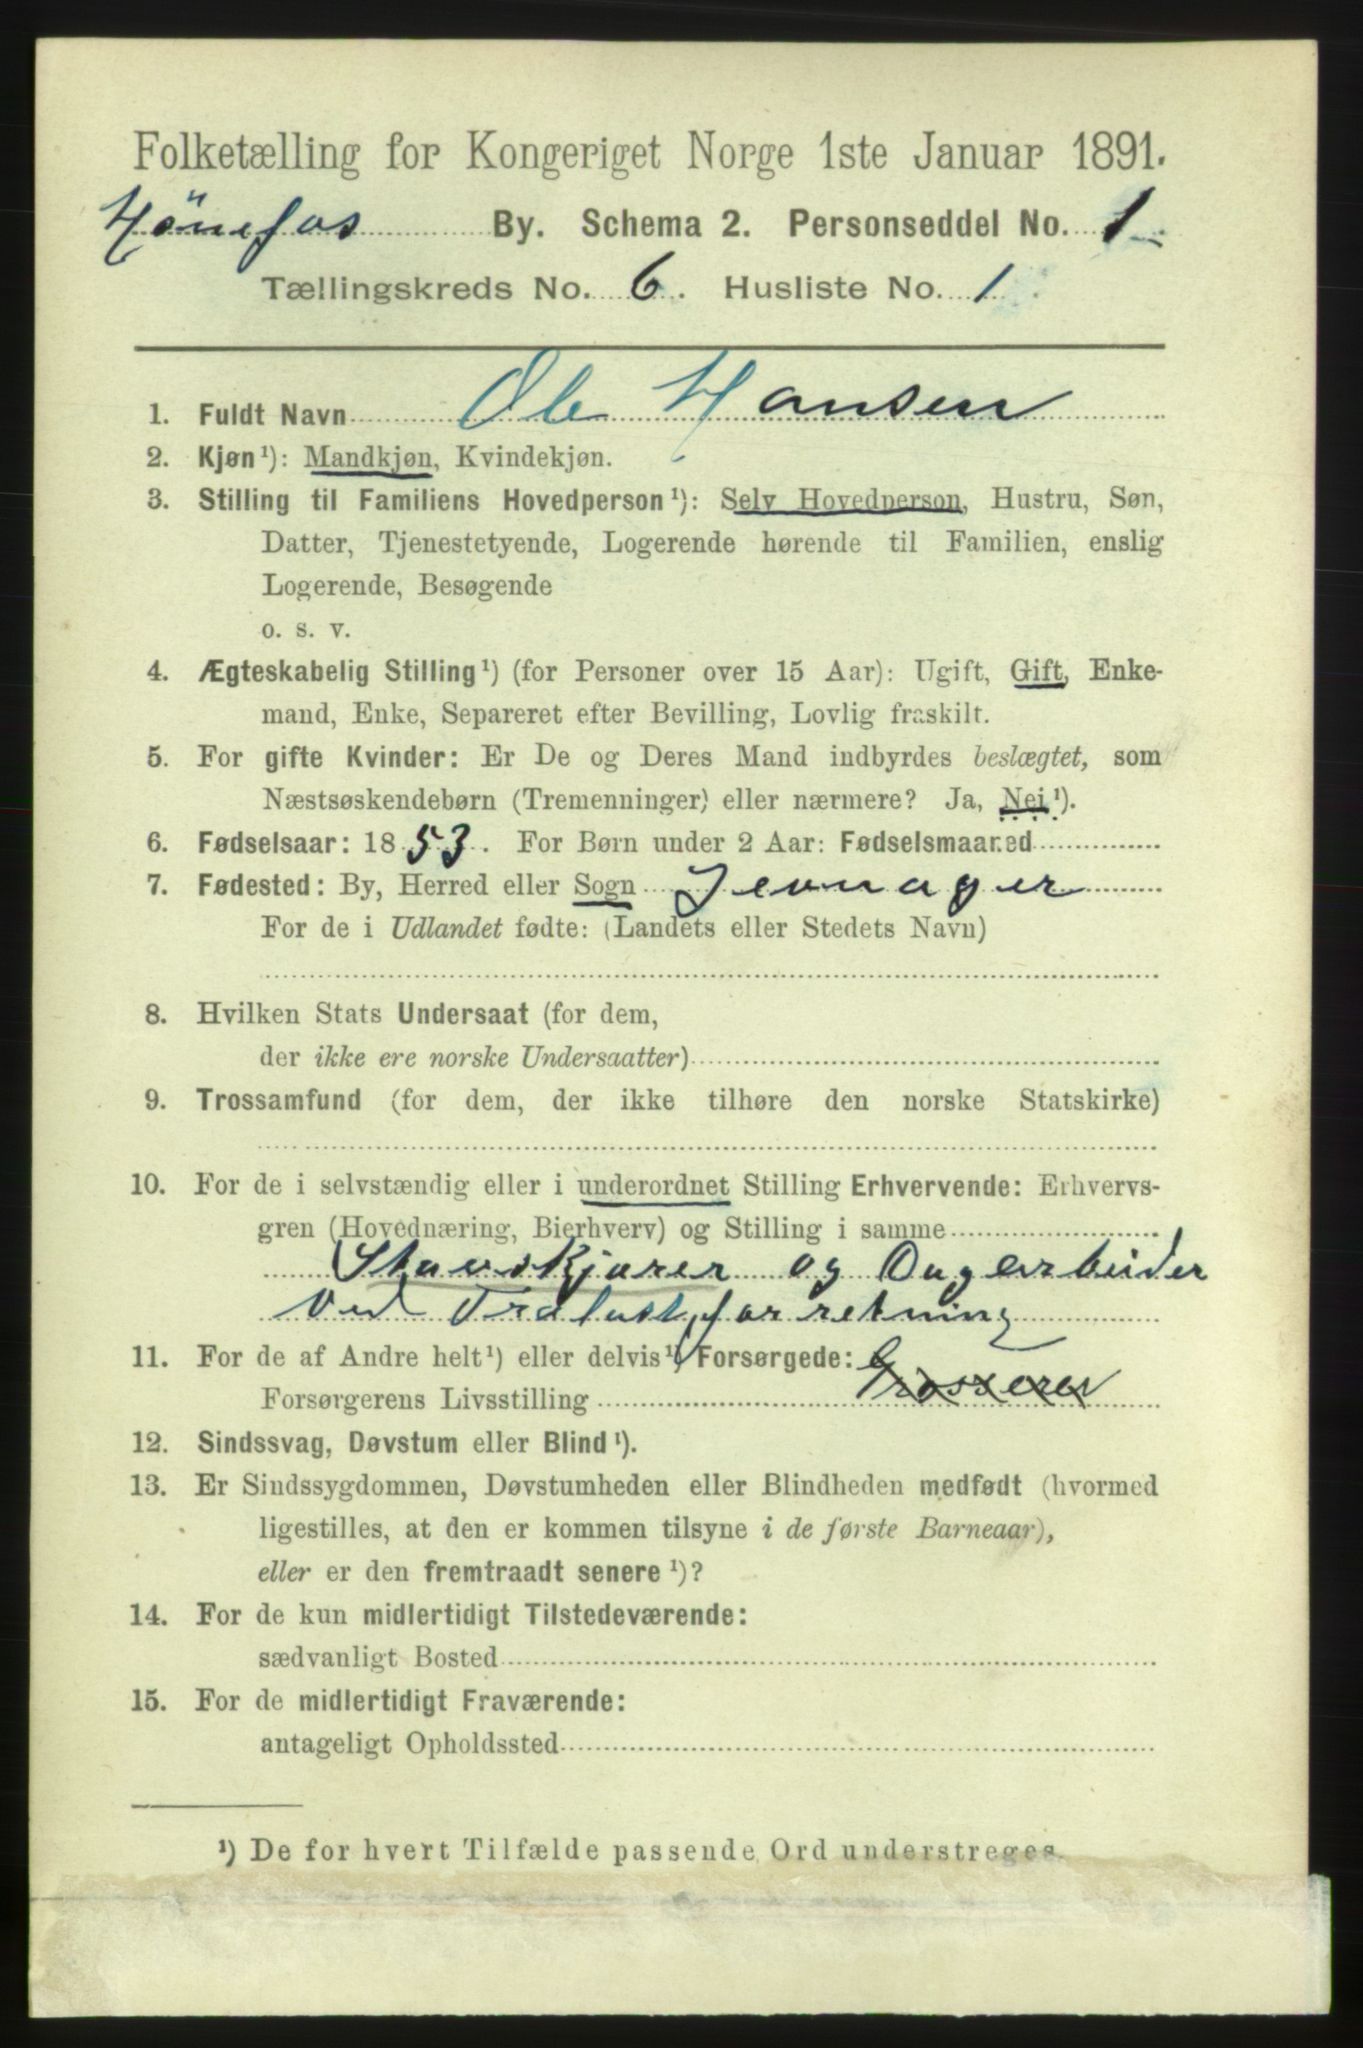 Folketælling for Kongeriget Norge 1ste Januar 1891.
Hönefos By. Schema 2. Personseddel No. 1
Tællingskreds No. 6. Husliste No. 1
1. Fuldt Navn Ole Hansen
2. Kjøn¹): Mandkjøn, Kvindekjøn.
3. Stilling til Familiens Hovedperson¹): Selv Hovedperson, Hustru, Søn,
Datter, Tjenestetyende, Logerende hørende til Familien, enslig
Logerende, Besøgende
o. s. v.
4. Ægteskabelig Stilling¹) (for Personer over 15 Aar): Ugift, Gift, Enke-
mand, Enke, Separeret efter Bevilling, Lovlig fraskilt.
5. For gifte Kvinder: Er De og Deres Mand indbyrdes beslægtet, som
Næstsøskendebørn (Tremenninger) eller nærmere? Ja, Nei¹).
6. Fødselsaar: 1853. For Børn under 2 Aar: Fødselsmaaned
7. Fødested: By, Herred eller Sogn Jevnager
For de i Udlandet fødte: (Landets eller Stedets Navn)
8. Hvilken Stats Undersaat (for dem,
der ikke ere norske Undersaatter)
9. Trossamfund (for dem, der ikke tilhøre den norske Statskirke)
10. For de i selvstændig eller i underordnet Stilling Erhvervende: Erhvervs-
gren (Hovednæring, Bierhverv) og Stilling i samme
og Dagarbeider
ved Trælastforretning
11. For de af Andre helt¹) eller delvis¹) Forsørgede:
Forsørgerens Livsstilling Grosserer
12. Sindssvag, Døvstum eller Blind¹).
13. Er Sindssygdommen, Døvstumheden eller Blindheden medfødt (hvormed
ligestilles, at den er kommen tilsyne i de første Barneaar),
eller er den fremtraadt senere¹)?
14. For de kun midlertidigt Tilstedeværende:
sædvanligt Bosted
15. For de midlertidigt Fraværende:
antageligt Opholdssted
¹) De for hvert Tilfælde passende Ord understreges.